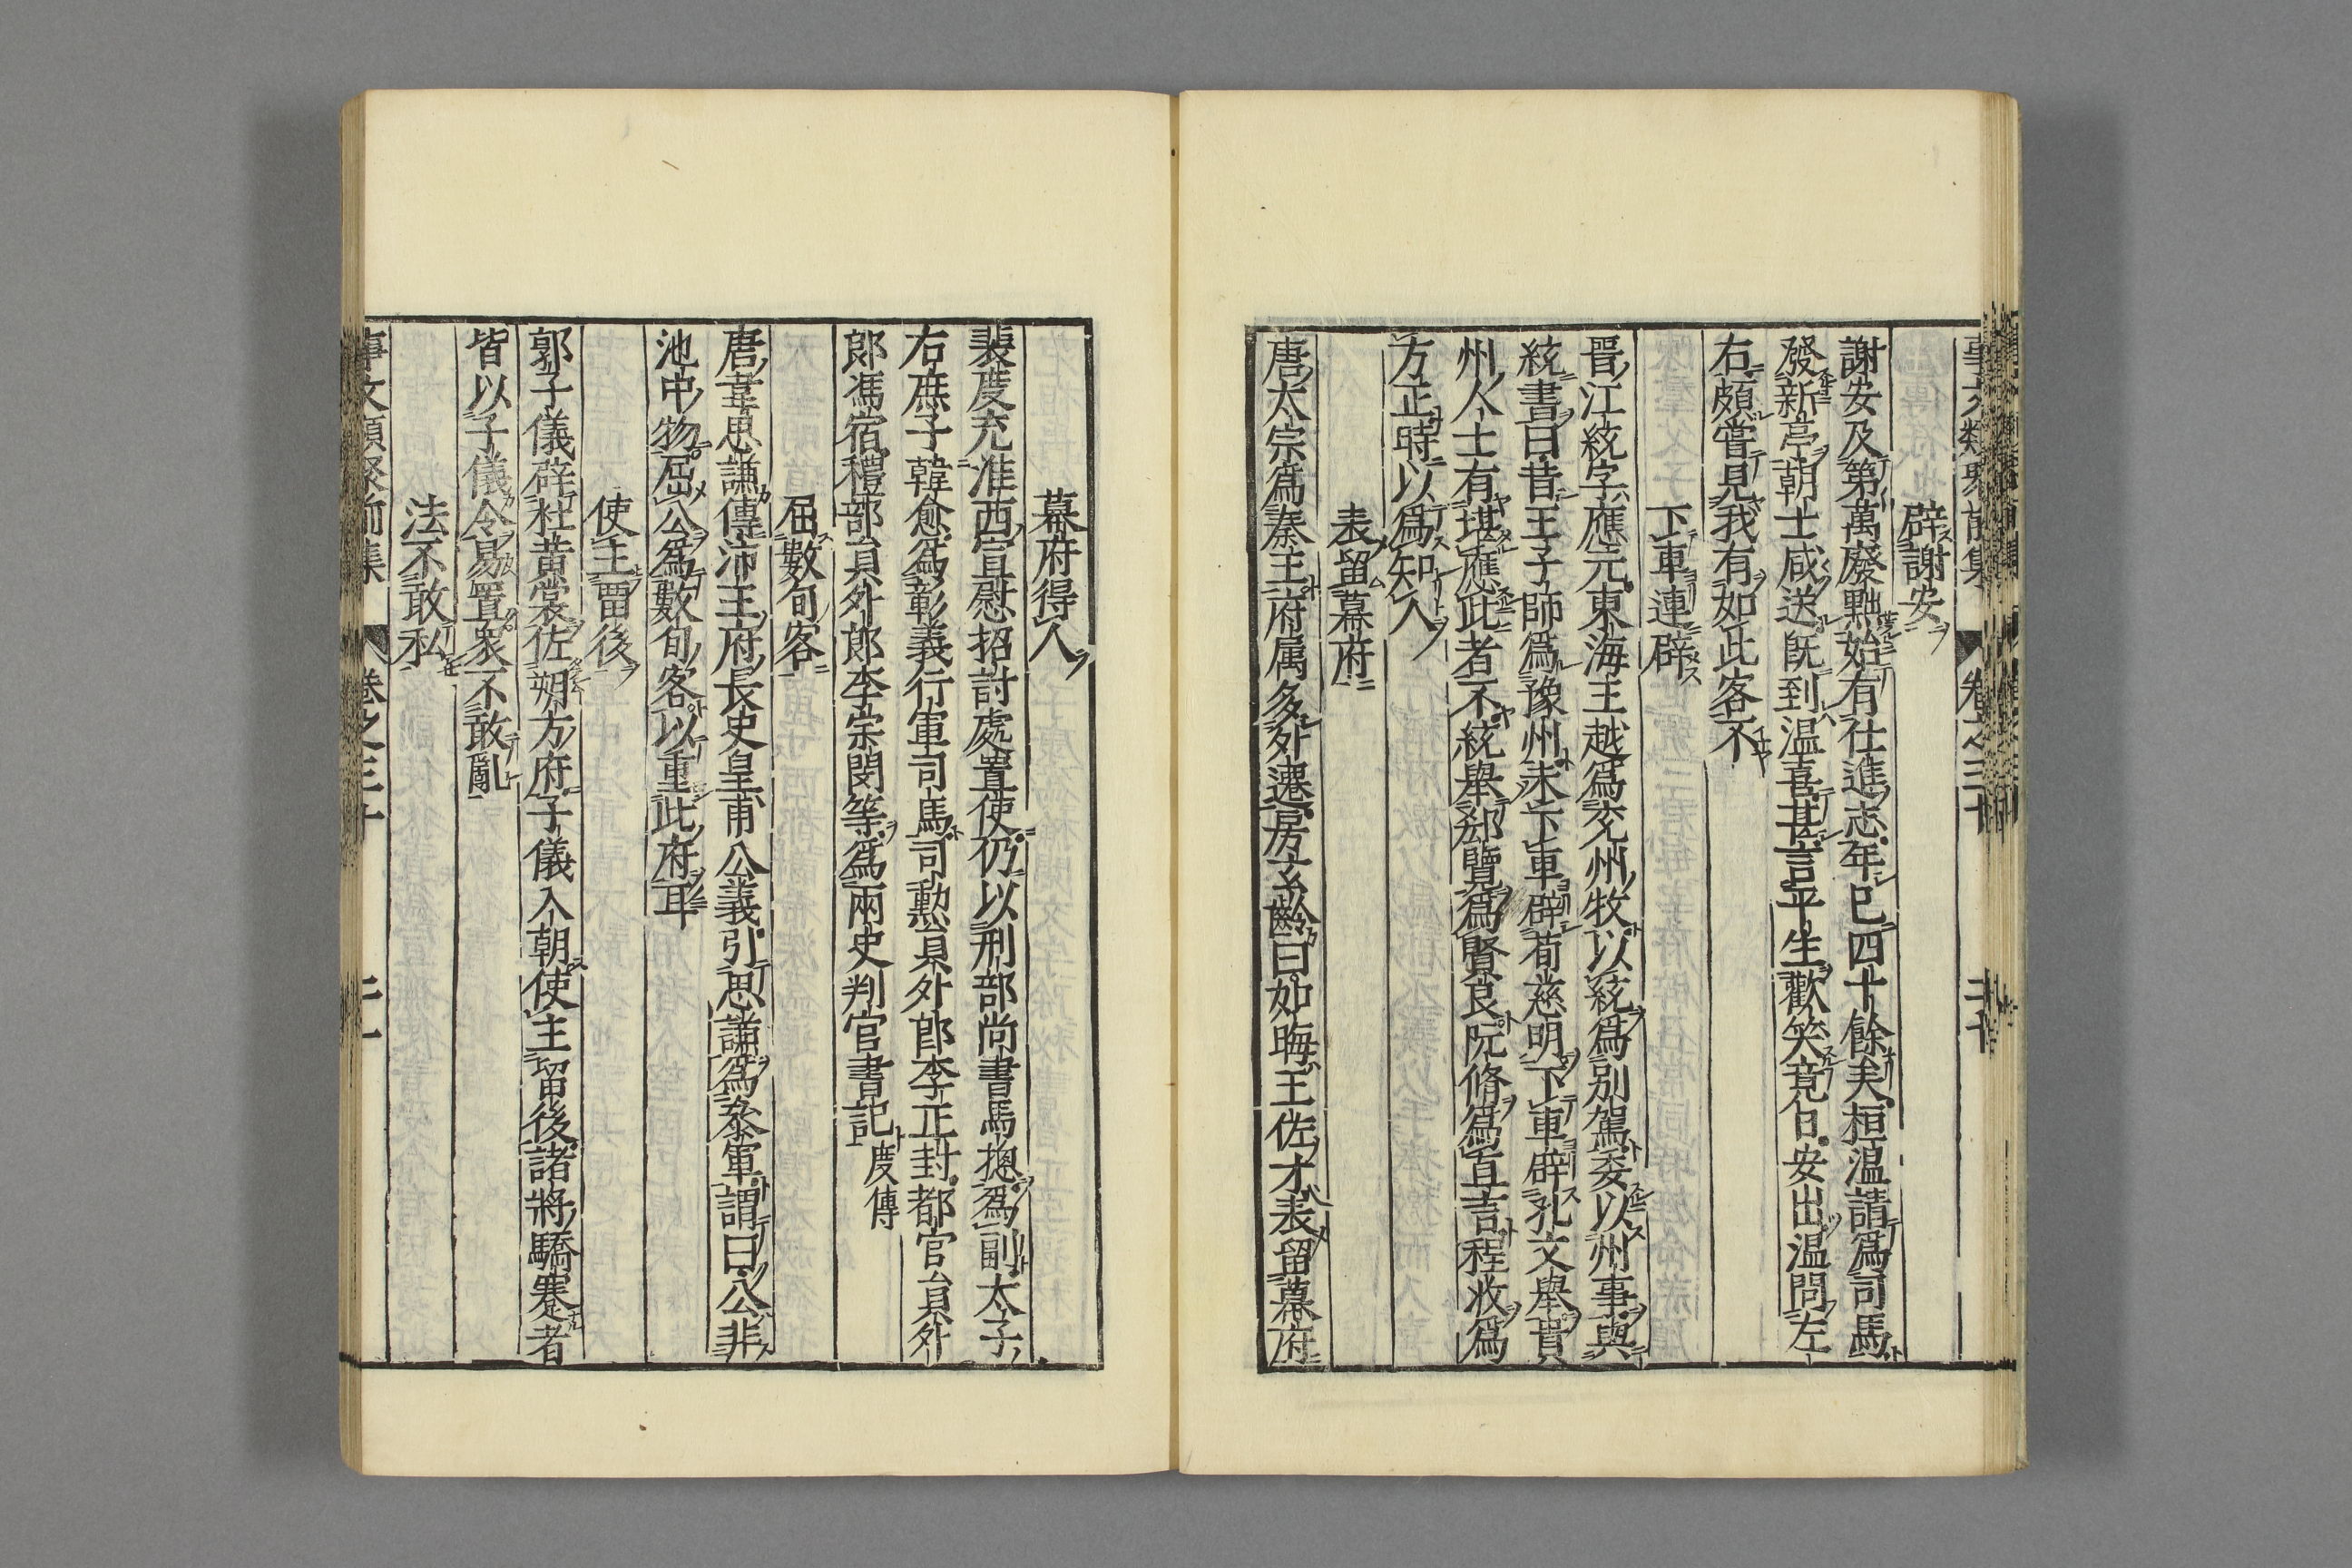 辟謝安
謝安及弟萬廢黜始有仕進志年已四十餘矣桓温請爲司馬
發新亭朝士咸送旣到温喜甚言平生歡笑竟日安出温問左
右頗嘗見我有如此客不
下車連辟
晋江統字應元東海王越爲兖州牧以統爲别駕委以州事與
統書曰昔王子師爲豫州未下車辟荀慈明下車辟孔文舉貴
州人士有堪應此者不統舉郄覽爲賢良阮脩爲直言程收爲
方正時以爲知人
表留幕府
唐太宗爲秦王府属多外遷房玄齡曰如晦王佐才表留幕府
幕府得人
裴度充淮西宣慰招討處置使仍以刑部尚書馬摠爲副太子
右庶子韓愈爲彰義行軍司馬司勲員外郎李正封都官員外
郎馮宿禮部員外郎李宗閔等爲兩史判官書記 度傳
屈數旬客
唐韋思謙傳沛王府長史皇甫公義引思謙爲叅軍謂曰公非
池中物屈公爲數旬客以重此府耳
使主畱後
郭子儀辟杜黄裳佐朔方府子儀入朝使主留後諸將驕蹇者
皆以子儀令易置衆不敢亂
法不敢私
事文類聚前集 卷之三十 二十一